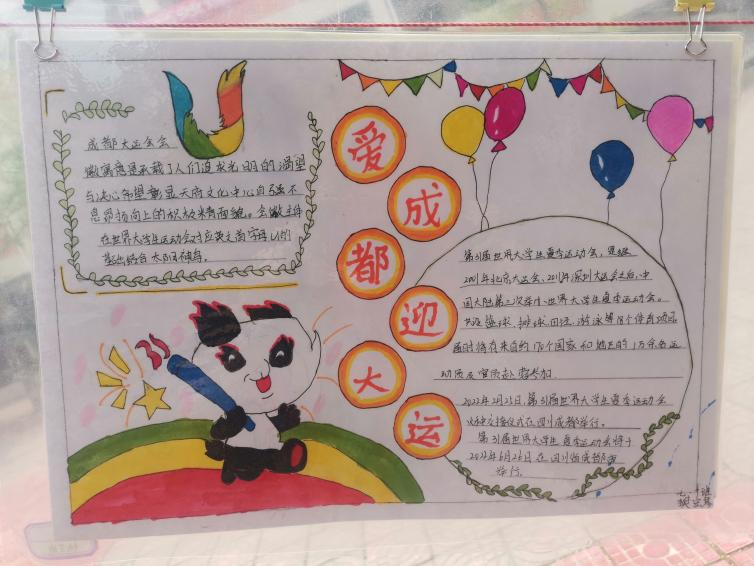 成都大运会会
徽寓意是承载了人们追求光明的渴望
与决心希望彰显天府文化中心自强不
息昂扬向上的积极精面貌。会徽主体
在世界大学生运动会对应英文首字母U的
基础结合太阳神鸟.
爱
成
都
迎
大
运
第31届世界大学生夏季运动会, 是继
2001年北京大运会、2011年深圳大运会之后,中
国大陆第三次举办世界大学生夏季运动会。
篮球、排球、田径、游泳等18个体育项目
届时将有来自约170个国家和地区的1万余名运
动员及官员赴蓉参加.
月 日,第31届世界大学生夏季运动会
交接仪式在四川成都举行。
第31届世界大学生夏季运动会将于
2022年6月26日在四川省成都市
举行.
七.一班